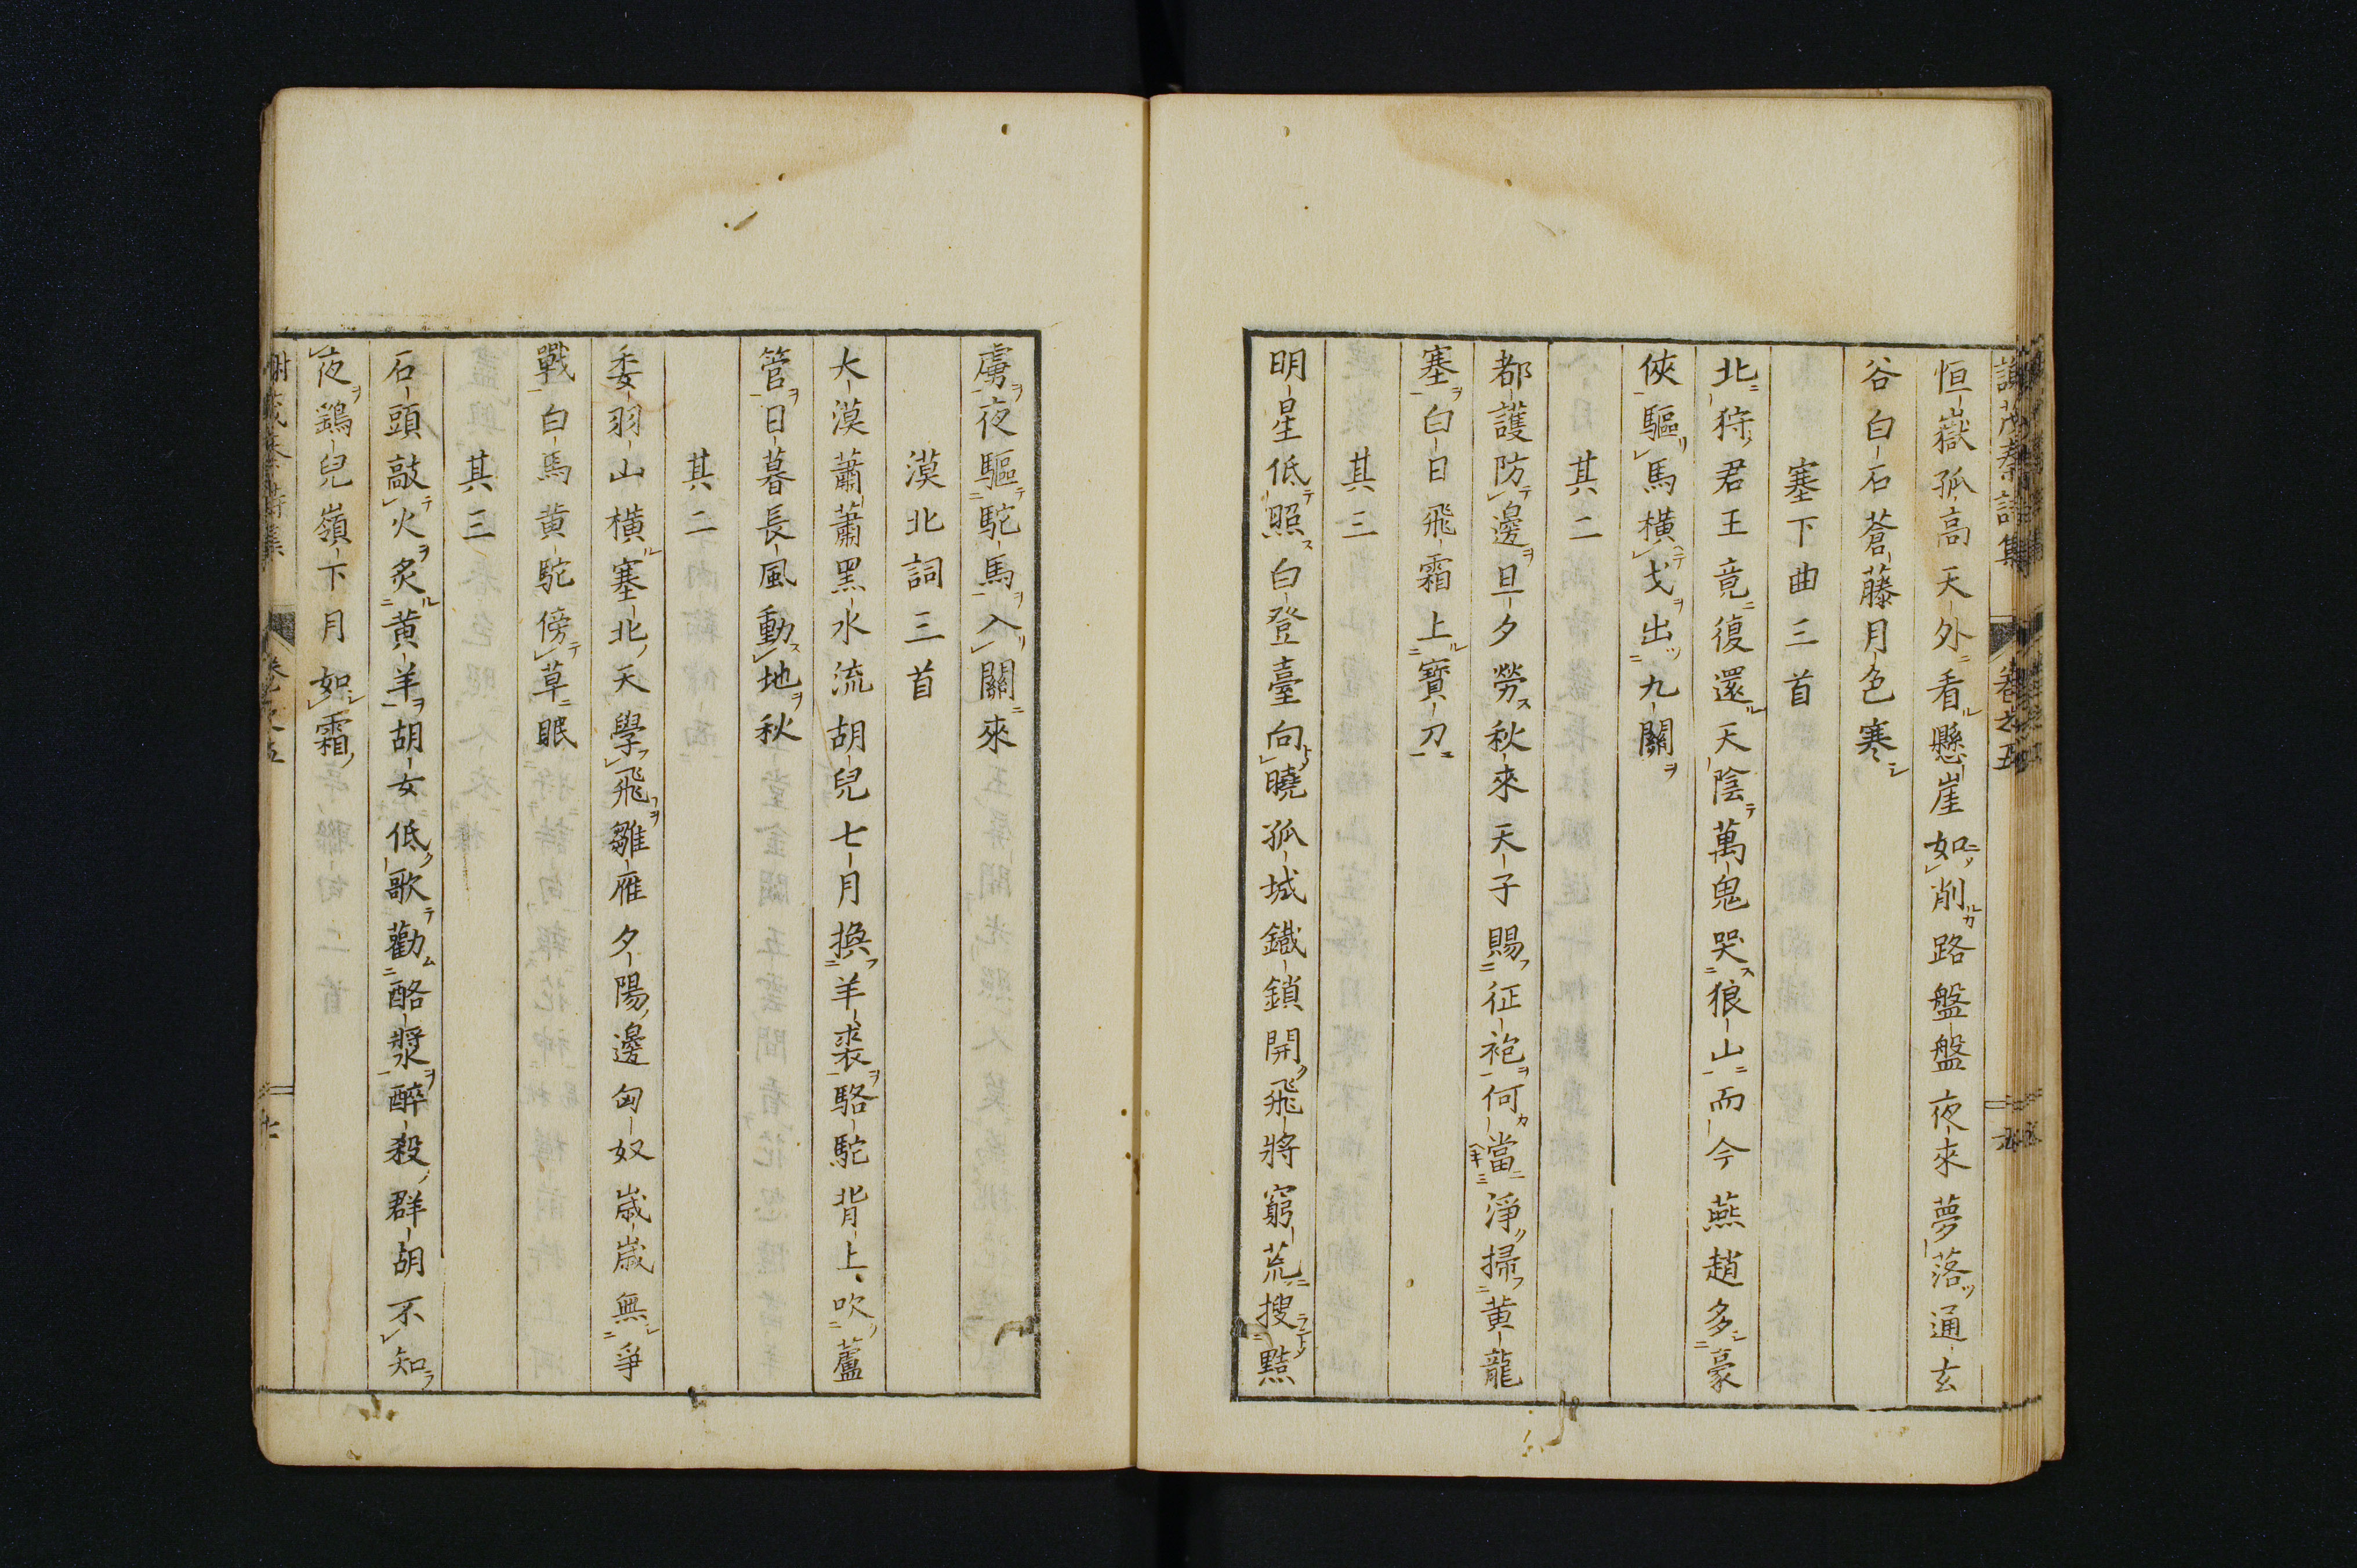 謝茂秦詩集 卷之五
恒嶽孤高天外看懸崖如削路盤盤夜來夢落通玄
谷白石蒼藤月色寒
塞下曲三首
北狩君王竟復還天陰萬鬼哭狼山而今燕趙多豪
俠驅馬橫戈出九關
其二
都護防邊旦夕勞秋來天子賜征袍何當淨掃黃龍
塞白日飛霜上寶刀
其三
明星低照白登臺向曉孤城鐵鎖開飛將窮荒搜黠
虜夜驅駝馬入關來
漠北詞三首
大漠蕭蕭黑水流胡兒七月換羊裘駱駝背上吹蘆
管日暮長風動地秋
其二
委羽山橫塞北天學飛雛雁夕陽邊匈奴歲歲無爭
戰白馬黃駝傍草眠
其三
石頭敲火炙黃羊胡女低歌勸酪漿醉殺群胡不知
夜鷂兒嶺下月如霜